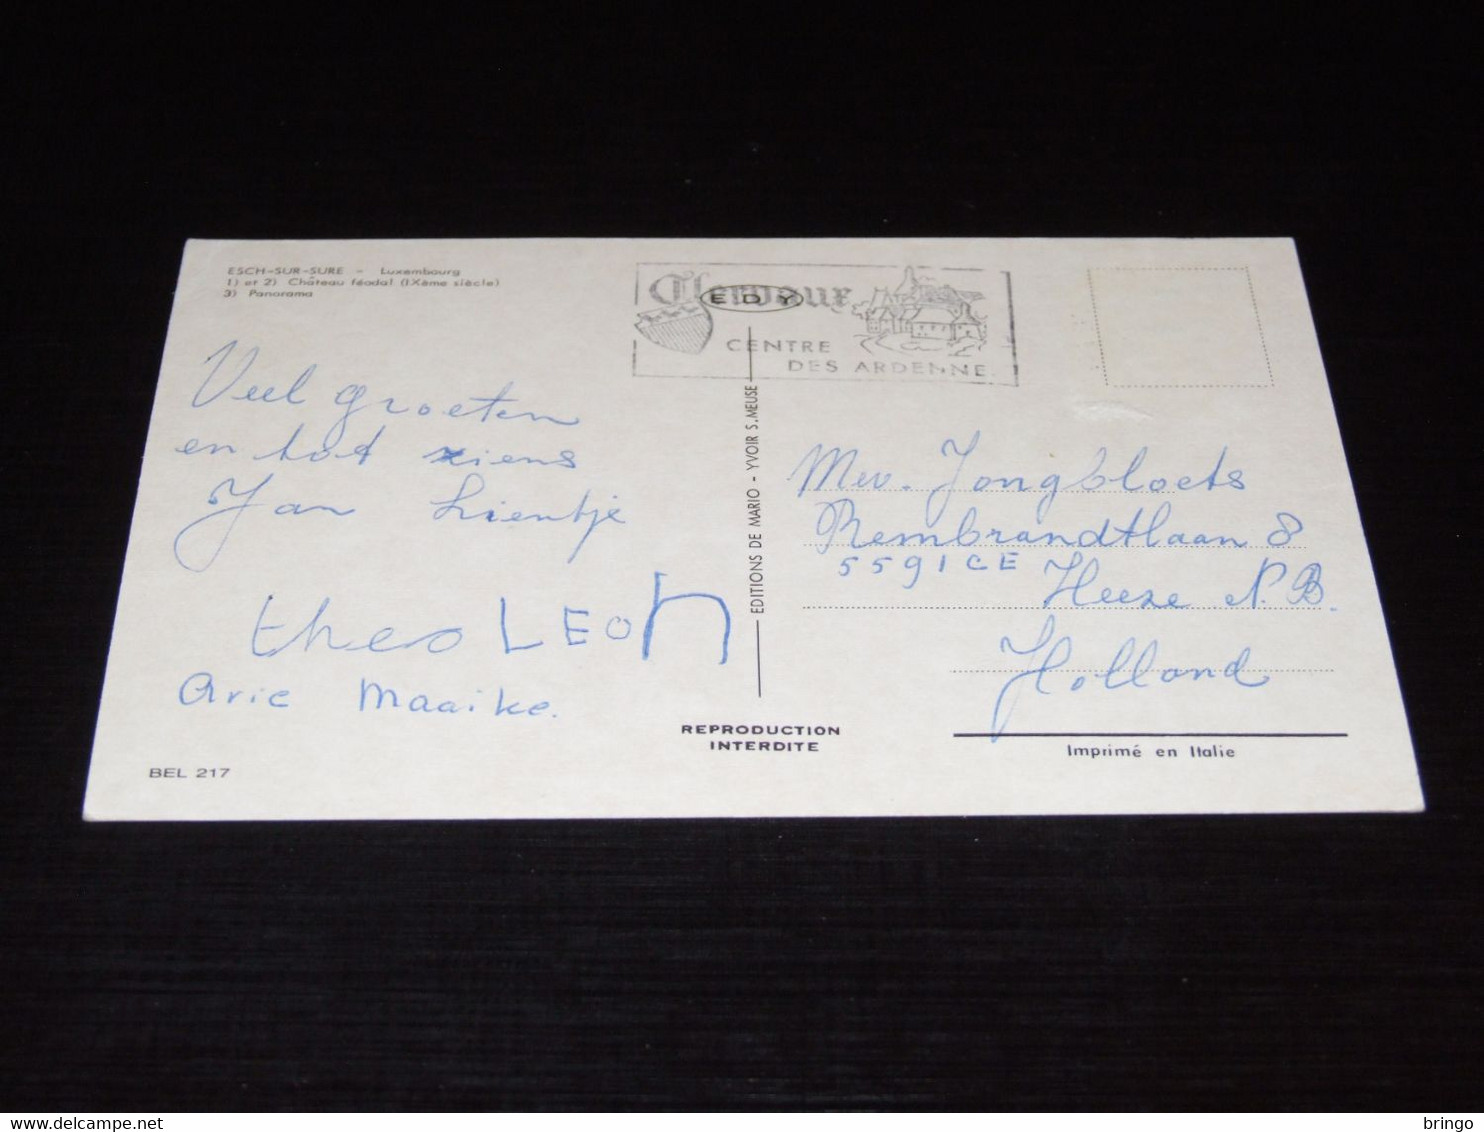 ESCH-SUR-SURE - Luxembourg
1) et 2) Château féodal (IXème siècle)
3) Panorama
Clervaux
EDY
CENTRE
DES ARDENNE
Veel groeten
en tot ziens
Jan Lientje
theo LEON
Arie Maaike.
BEL 217
EDITIONS DE MARIO - YVOIR S. MEUSE
REPRODUCTION
INTERDITE
Mev. Jongbloets
Rembrandtlaan 8
5591CE Heeze N.B.
Holland
Imprimé en Italie
bringo